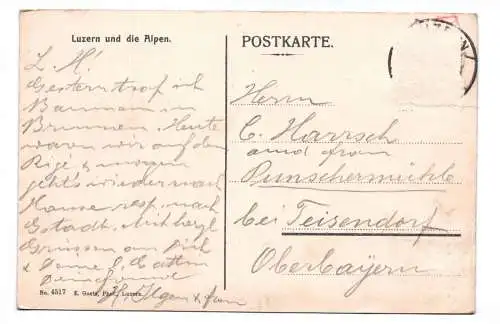 Luzern und die Alpen.
L. M!
Gestern traf ich
Baumann in
Brunnen. Heute
waren wir auf dem
Rigi & morgen
geht's wieder nach
Hause resp. nach
Gstadt. Mit herzl
Grüssen an Dich
& Deine l.
No. 4517 E. Goetz, Phot., Luzern.
POSTKARTE.
Herrn
C. Harrsch
and from
Punschermühle
bei Teisendorf
Oberbayern